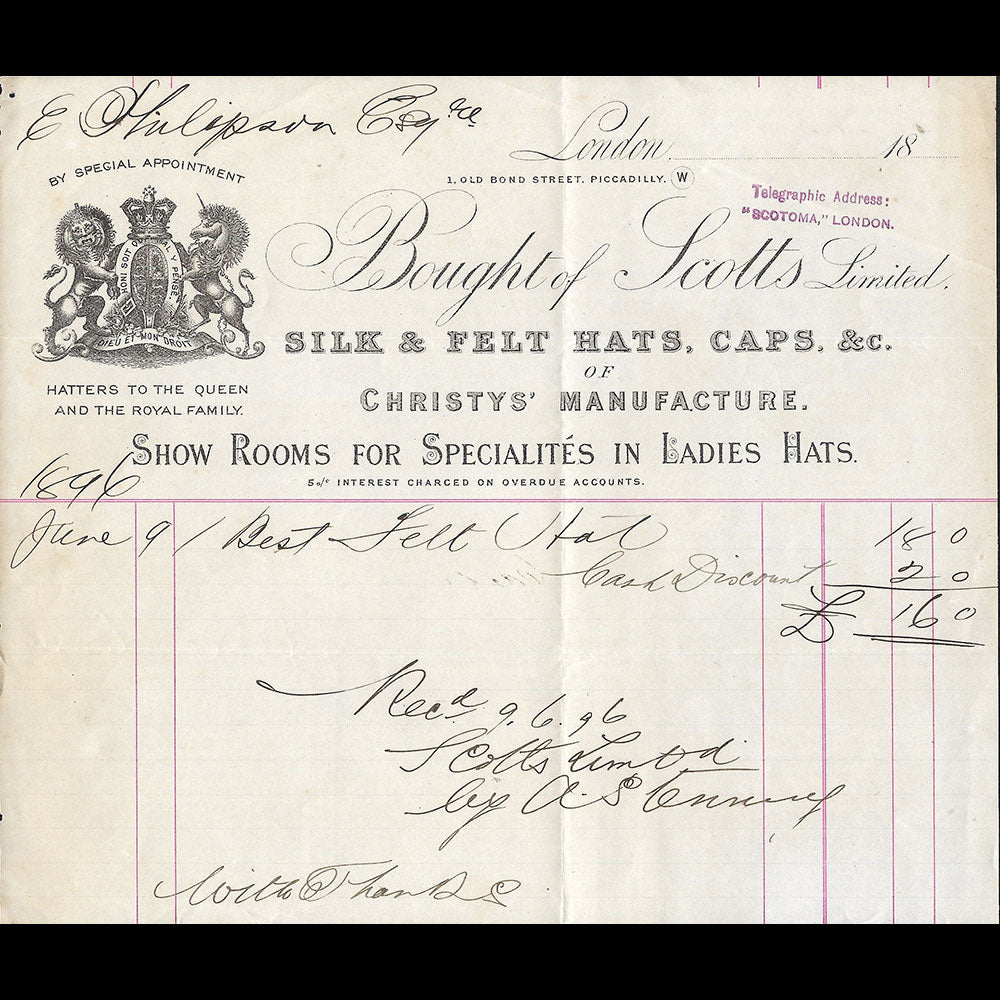 E Philipson Esqre
London 18
BY SPECIAL APPOINTMENT
1, OLD BOND STREET, PICCADILLY, W
Telegraphic Address:
"SCOTOMA," LONDON.
HONI SOIT QUI MAL Y PENSE
DIEU ET MON DROIT
Bought of Scotts Limited.
SILK & FELT HATS, CAPS, &c.
OF
HATTERS TO THE QUEEN
AND THE ROYAL FAMILY.
CHRISTYS' MANUFACTURE.
SHOW ROOMS FOR SPECIALITÉS IN LADIES HATS.
5o/c INTEREST CHARGED ON OVERDUE ACCOUNTS.
1896
June 9 1 Best Felt Hat 18 0
Cash Discount 2 0
£ 16 0
Recd 9.6.96
Scotts Limtd
by A.
With Thanks